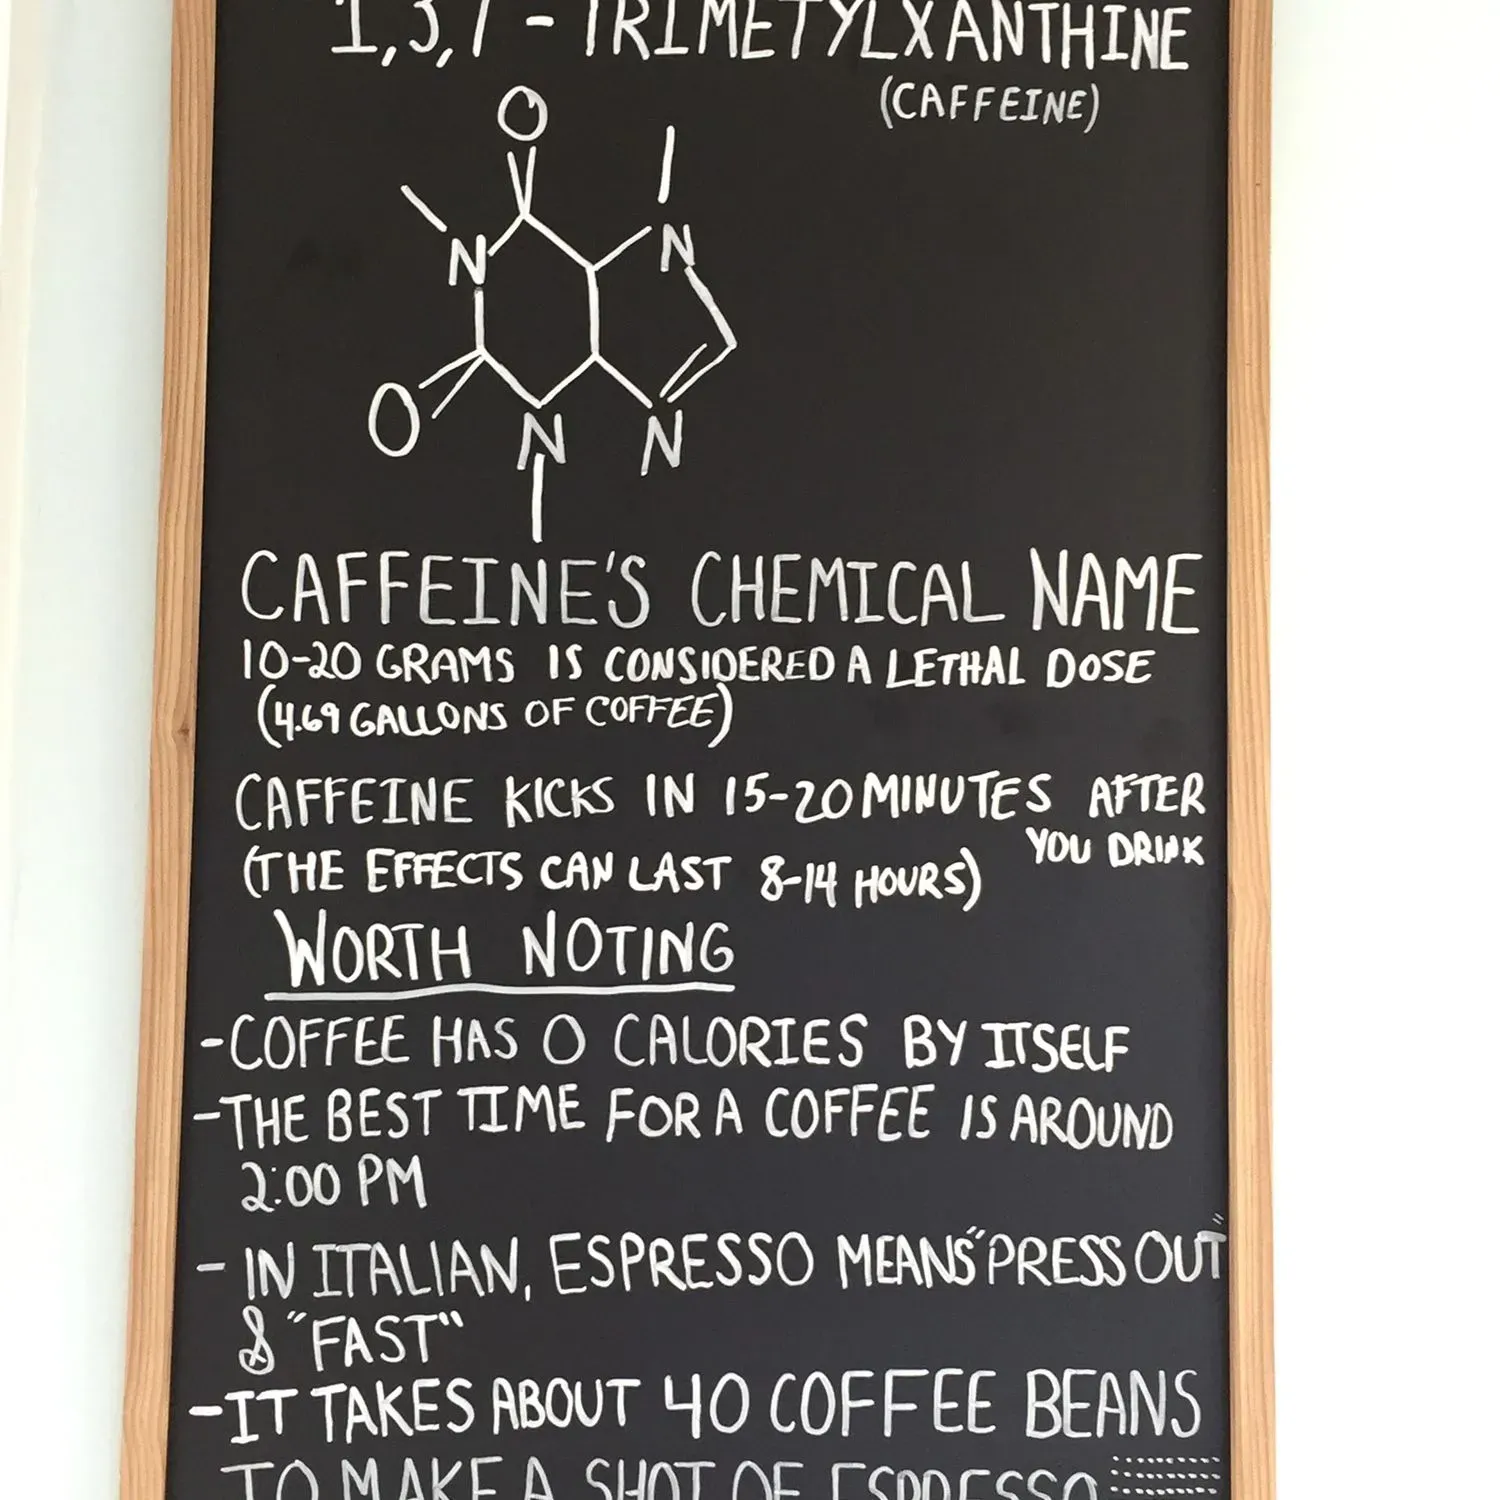 1,3,7 - TRIMETYLXANTHINE
(CAFFEINE)
O
N
N
O
N
N
CAFFEINE'S CHEMICAL NAME
10-20 GRAMS IS CONSIDERED A LETHAL DOSE
(4.69 GALLONS OF COFFEE)
CAFFEINE KICKS IN 15-20 MINUTES AFTER
YOU DRINK
(THE EFFECTS CAN LAST 8-14 HOURS)
WORTH NOTING
-COFFEE HAS 0 CALORIES BY ITSELF
-THE BEST TIME FOR A COFFEE IS AROUND
2:00 PM
- IN ITALIAN, ESPRESSO MEANS "PRESS OUT"
& "FAST"
-IT TAKES ABOUT 40 COFFEE BEANS
TO MAKE A SHOT OF ESPRESSO